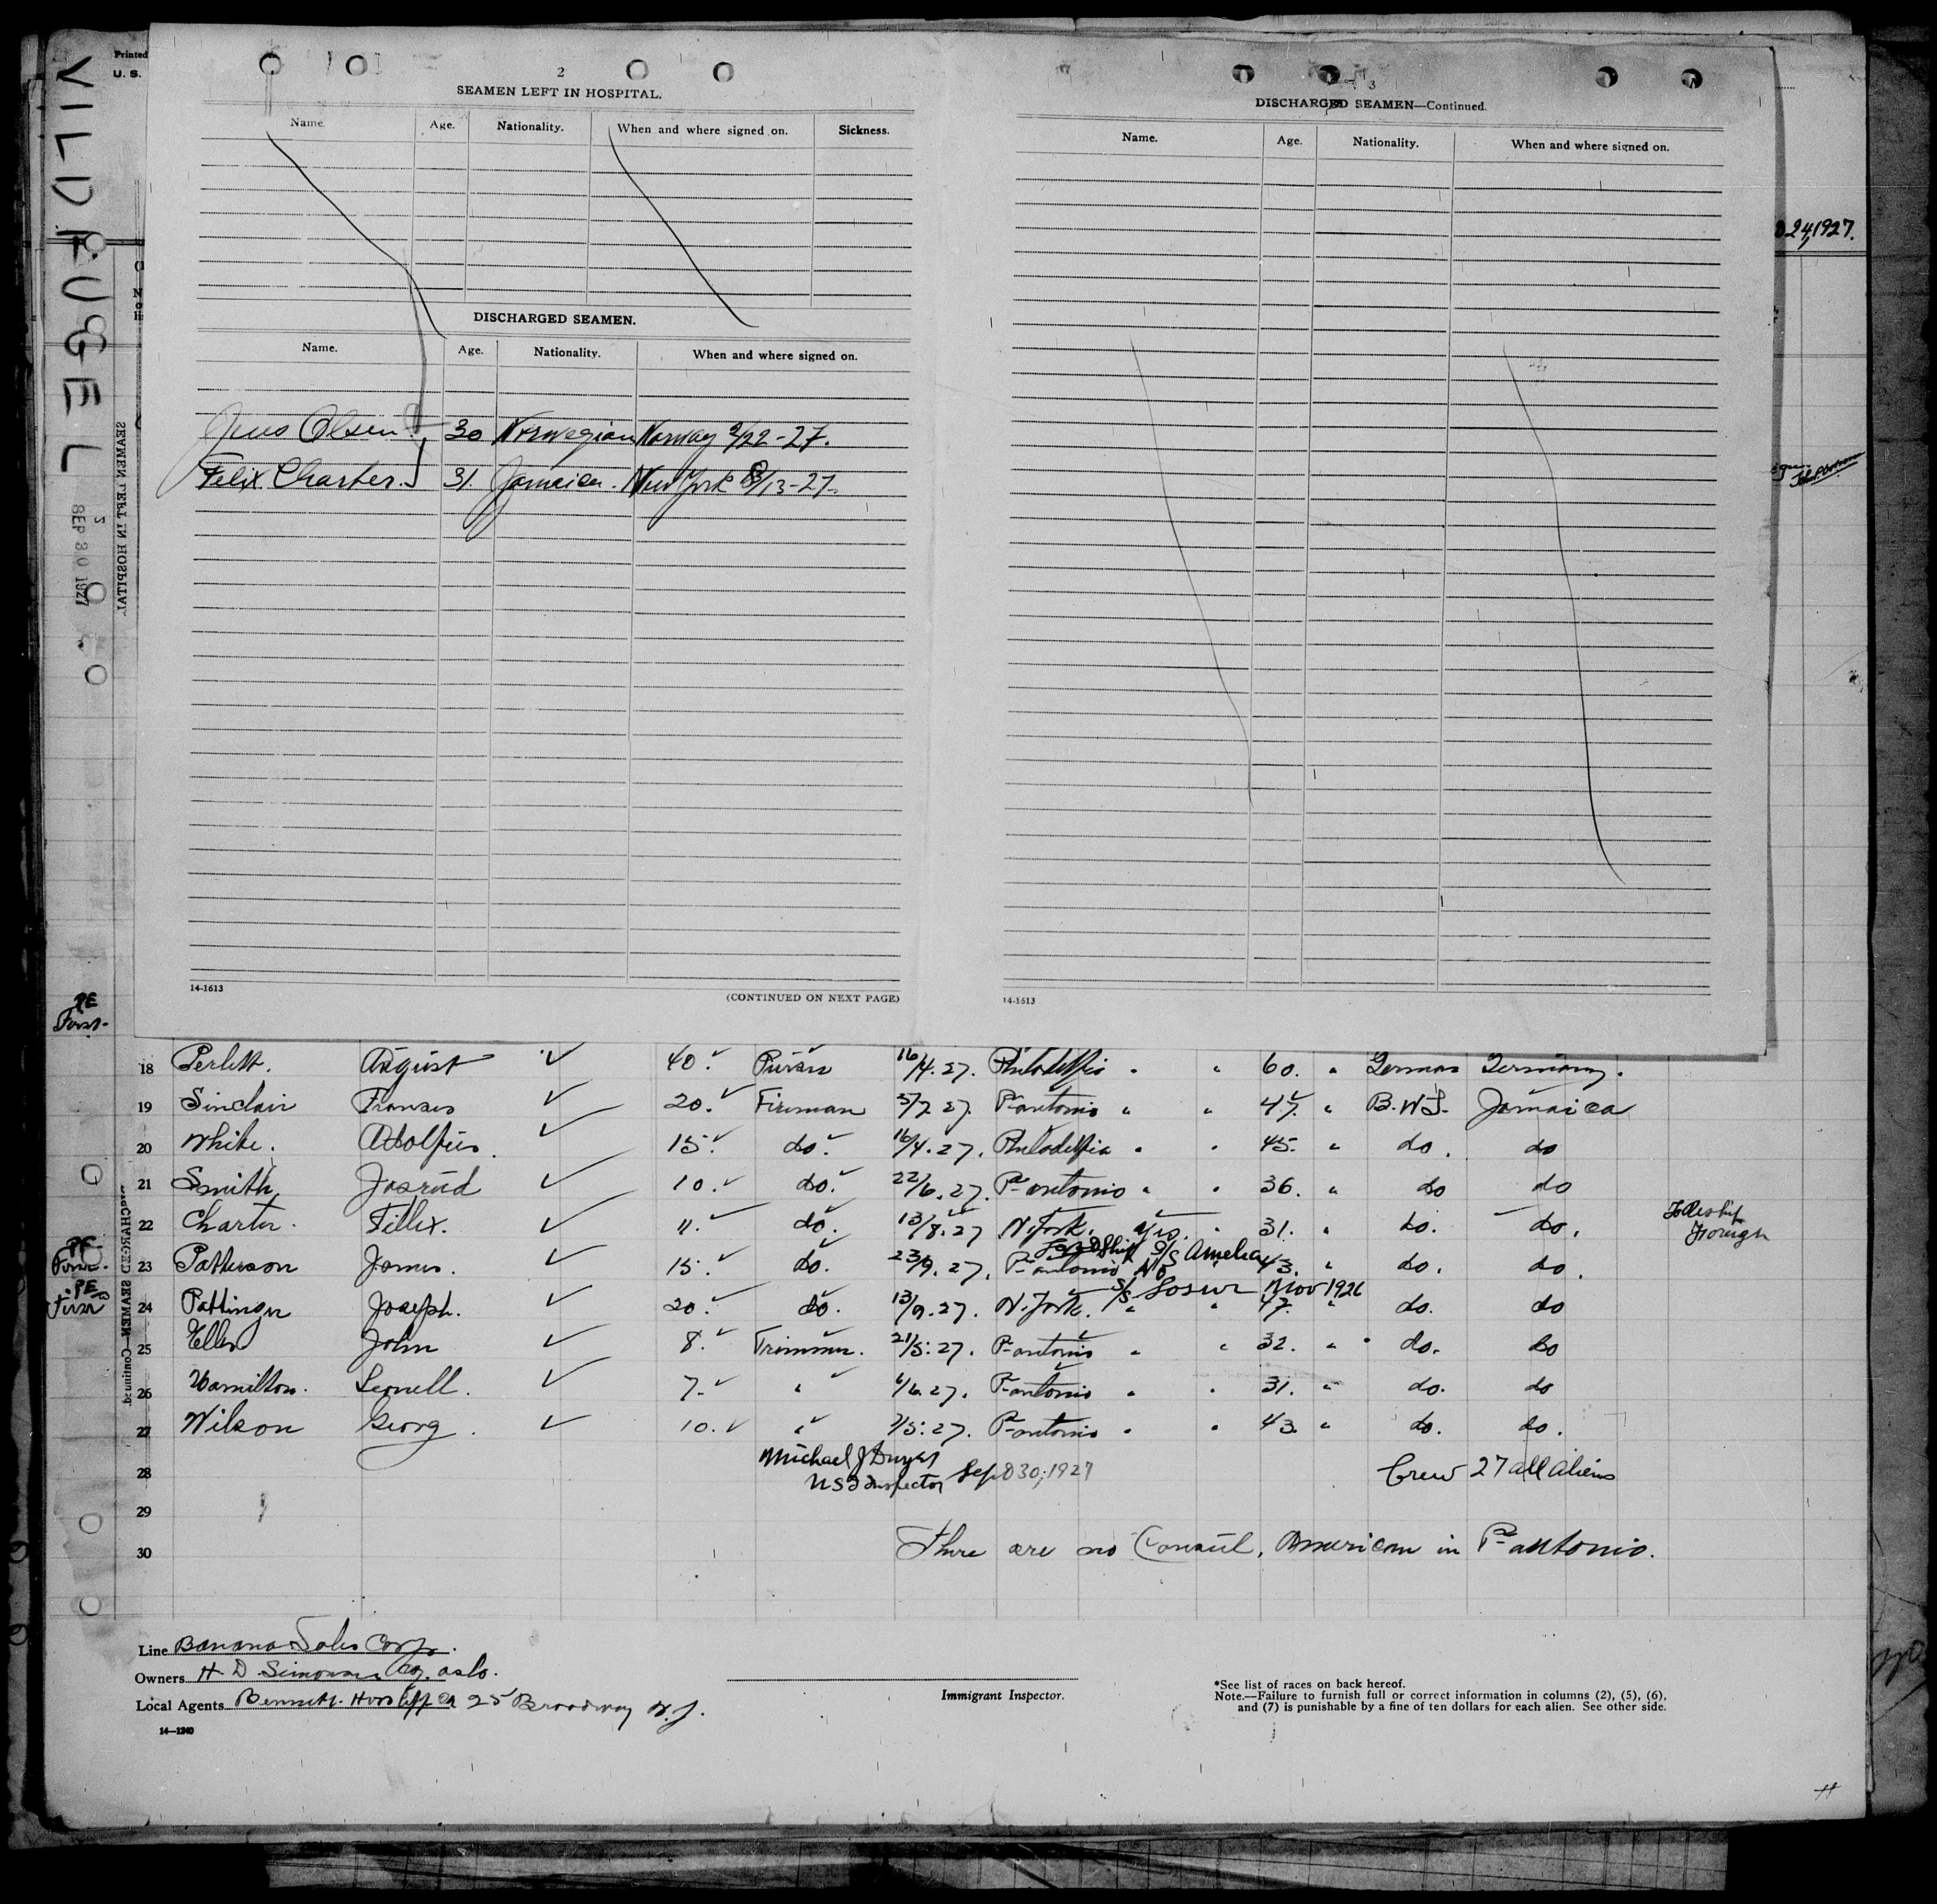 VILDFUGEL
SEP 30 1927
Printed
U. S.
2
SEAMEN LEFT IN HOSPITAL.
Name. Age. Nationality. When and where signed on. Sickness.
DISCHARGED SEAMEN.
Name. Age. Nationality. When and where signed on.
Jens Olsen. 30 Norwegian Norway 2/22-27.
Felix Charter. 31. Jamaica. New York 8/13-27.
14-1613
(CONTINUED ON NEXT PAGE)
3
DISCHARGED SEAMEN—Continued.
Name. Age. Nationality. When and where signed on.
14-1613
24, 1927.
SEAMEN LEFT IN HOSPITAL
DISCHARGED SEAMEN—Continued
PE
18 Perlett. August 40. 16/4.27. Philadelfia " " 60. " German Germany.
19 Sinclair Franses 20. Fireman 5/7 27. Pt antonio " " 47. " B.W.I. Jamaica
20 White. Adolfus. 15. do. 16/4.27. Philadelfia " " 45. " do. do
21 Smith 10. do. 22/6.27. Pt antonio " " 36. " do do
22 Charter. Fillex. 11. do. 13/8.27 N. York. yes. " 31. " do. do.
Foreign
PE
23 Patterson James. 15. do. 23/9.27. Pt antonio No S/S Amelia 43. " do. do.
PE
S/S Nov 1926
24 Pattinson Joseph. 20. do. 13/9.27. N. York. " " 47. " do. do
25 John 8. Trimmer. 21/5.27. Pt antonio " " 32. " do. do
26 Hamilton. Leonell. 7. " 1/6.27. Pt antonio " " 31. " do. do
27 Wilson Georg. 10. " 7/5.27. Pt antonio " " 43. " do. do.
28 Michael J Dwyer Crew 27 all aliens
US Inspector Sep 30, 1927
29
30 There are no Consul, American in Pt antonio.
Line Banana Sales Corp.
Owners H. D. Simonsen Co. Oslo.
Local Agents Bennett. 25 Broadway N.Y.
14—1240
Immigrant Inspector.
*See list of races on back hereof.
Note.—Failure to furnish full or correct information in columns (2), (5), (6),
and (7) is punishable by a fine of ten dollars for each alien. See other side.